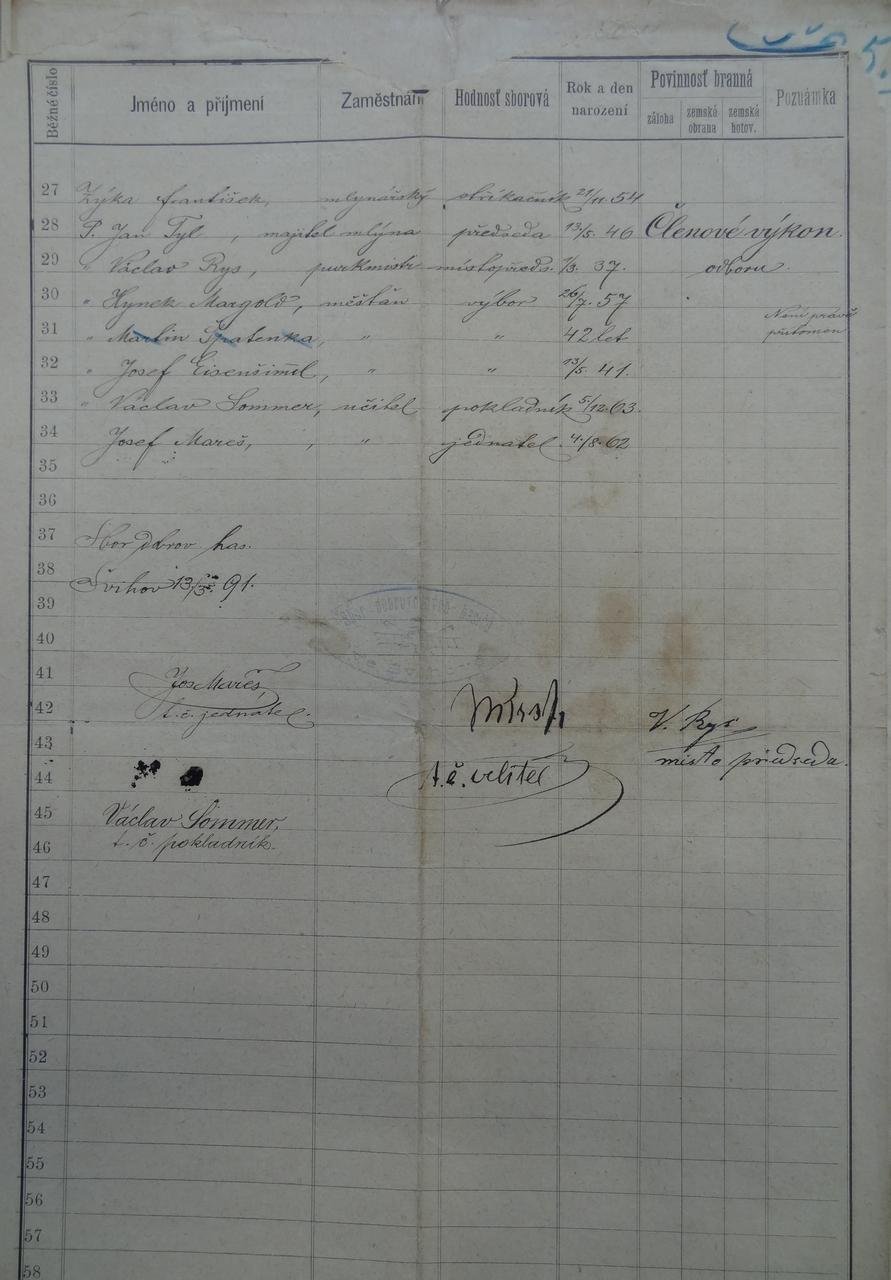 5.
Běžné číslo Jméno a příjmení Zaměstnání Hodnosť sborová Rok a den narození Povinnosť branná Poznámka
záloha zemská obrana zemská hotov.
27 Zýka František, mlynářský stříkačník 21/11 54
28 P. Jan Tyl, majitel mlýna předseda 13/5. 46 Členové výkon.
29 " Václav Rys, purkmistr místopředs. 1/3. 37. odboru.
30 " Hynek Margold, měšťan výbor 26/7. 57
31 " Martin Špatenka, " " 42 let Není právě přítomen
32 " Josef Eisenšiml, " " 13/5. 41.
33 " Václav Sommer, učitel pokladník 5/12.63.
34 Josef Mareš, , " jednatel 4./8. 62
35
36
37 Sbor dobrov. has.
38 Švihov 13/5. 91.
39
40
41 Jos Mareš,
42 t. č. jednatel. V. Rys
43 místo předseda.
44 t. č. velitel
45 Václav Sommer,
46 t. č. pokladník.
47
48
49
50
51
52
53
54
55
56
57
58